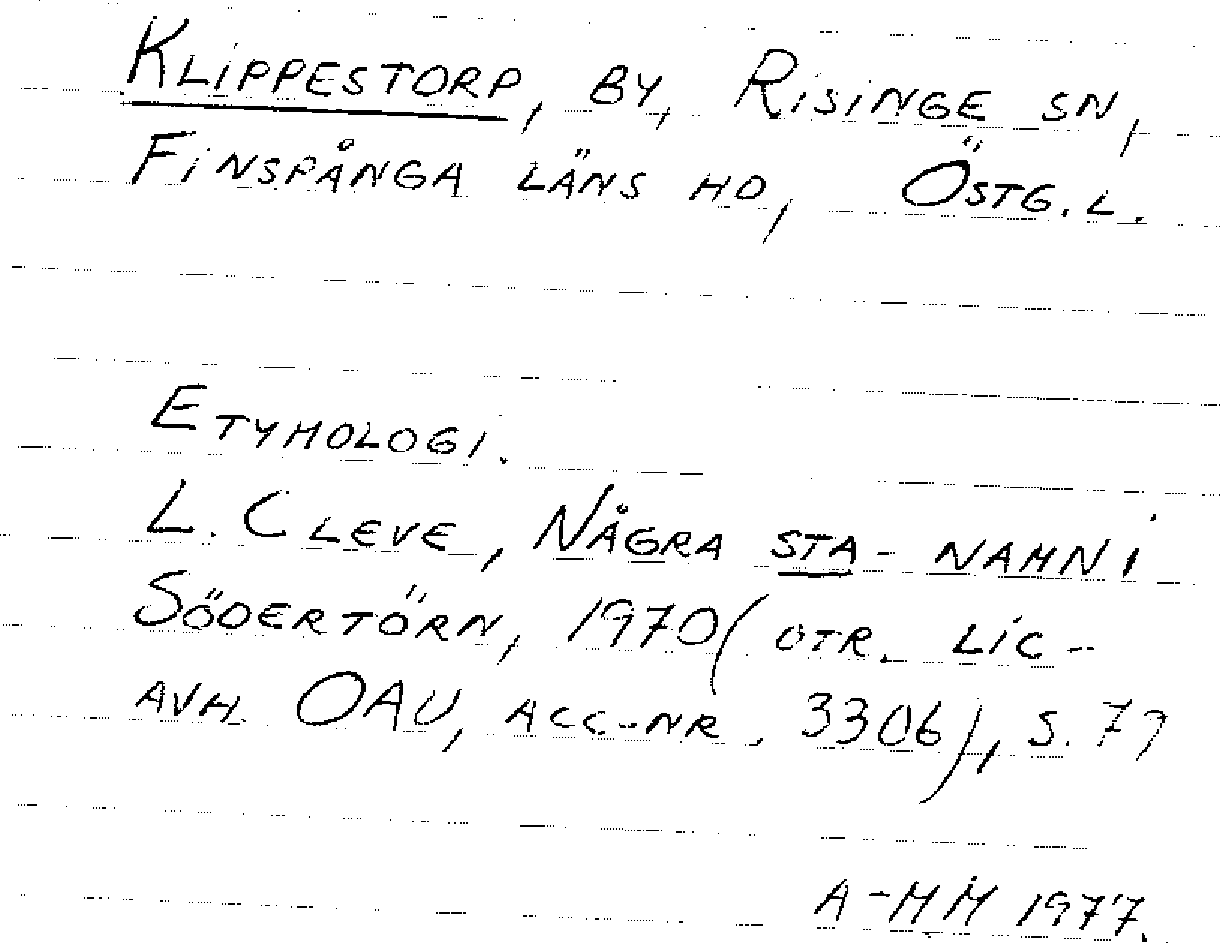 KLIPPESTORP, BY, RISINGE SN,
FINSPÅNGA LÄNS HD, ÖSTG.L.
ETYMOLOGI.
L. CLEVE, NÅGRA STA-NAMN I
SÖDERTÖRN, 1970 (OTR. LIC-
AVH. OAU, ACC-NR. 3306), S. 77
A-MM 1977.